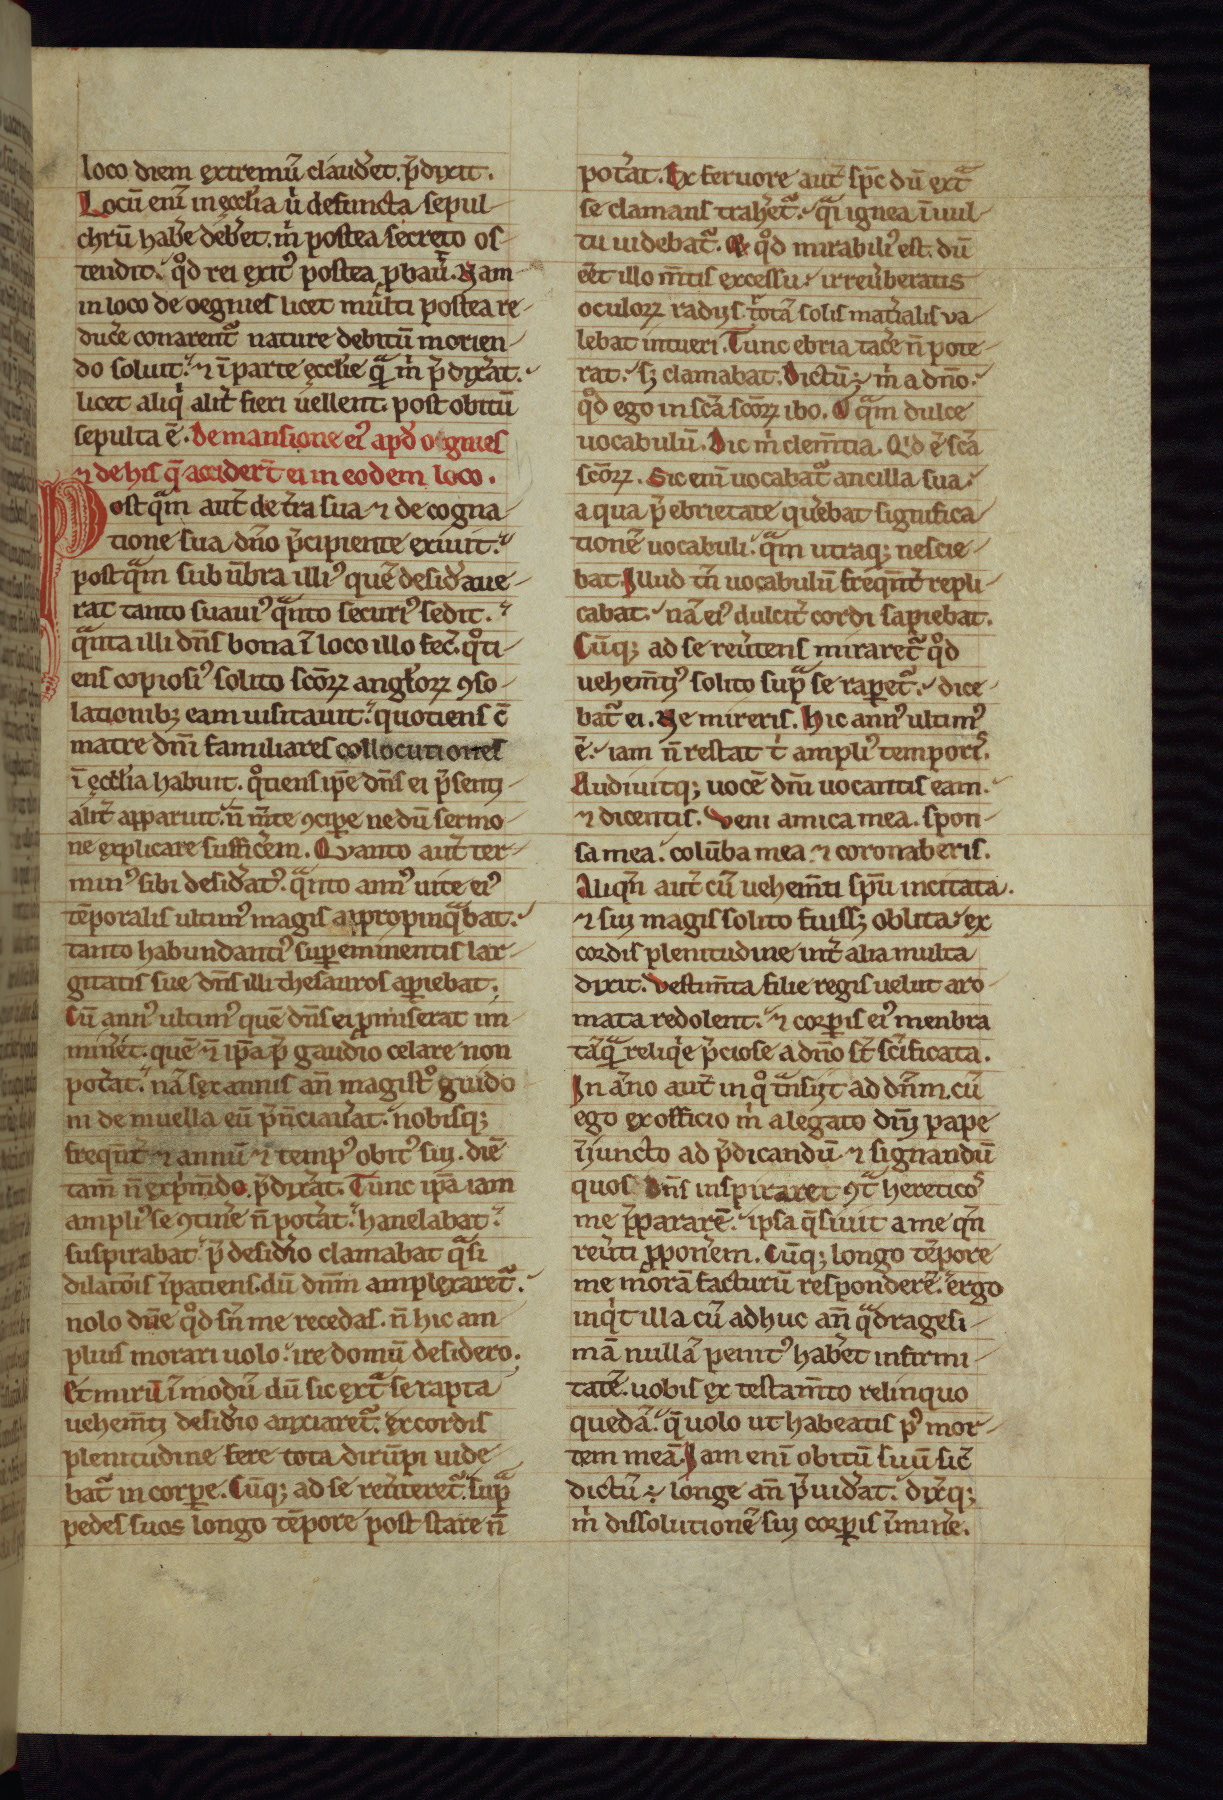 loco diem extremū claud̾et. p̄dixit.
Locū eni̾ in eccl̾ia u͛ defuncta sepul-
chrū hab̾e deb̾et. m͛ postea secreto os-
tendit. qͦd rei exitꝰ postea ꝓbau͛. Nam
in loco de oegnies licet multi postea re-
duc̾e conarent᷑ nature debitū morien-
do soluit. ⁊ ī parte eccl̾ie qᷓ m͛ p̄dix̾at.
licet aliq͛ alit̾ fieri uellent. post obitū
sepulta ē. De mansione eiꝰ apd̾ oegnies
⁊ de his q̄ accider̄t ei in eodem loco.
Postqᷓm aut̾ de t̾ra sua ⁊ de cogna-
tione sua dn̄o p̄cipiente exiuit.
postqᷓm sub ūbra illiꝰ quē desid̾aue-
rat tanto suauiꝰ qᷓnto securiꝰ sedit.
qᷓnta illi dn̄s bona ī loco illo fec̾. qͦti-
ens copiosiꝰ solito scōꝝ angl̾oꝝ ꝯso-
lationibꝫ eam uisitauit. quotiens c̄
matre dn̄i familiares collocutiones
ī eccl̾ia habuit. qͦtiens ip̄e dn̄s ei p̄senti-
alit̾ apparuit. n̄ m̄te ꝯcip̾e nedū sermo-
ne explicare suffic̾em. Quanto aut̾ ter-
minꝰ sibi desid̾atꝰ. qᷓnto annꝰ uite eiꝰ
tēporalis ultimꝰ magis appropinqᷓbat.
tanto habundantiꝰ suꝑeminentis lar-
gitatis sue dn̄s illi thesauros aꝑiebat.
Cū annꝰ ultimꝰ quē dn̄s ei ꝓmiserat im-
min̾et. quē ⁊ ip̄a p̄ gaudio celare non
pot̾at. nā sex annis an̄ magist̾o guido
ni de niuella eū p̄nūciau̾at. nobisqꝫ
freqn̄t̾ ⁊ annū ⁊ tempꝰ obitꝰ sui. diē
tam̄ n̄ exp͛m̄do. p̄dix̾at. Tunc ip̄a iam
ampliꝰ se ꝯtin̾e n̄ pot̾at. hanelabat.
suspirabat. p̄ desid̾io clamabat qᷓsi
dilatōis īpatiens. dū dn̄m amplexaret᷑.
nolo dn̄e qͦd sn̄ me recedas. n̄ hic am-
plius morari uolo. ire domū desidero.
Et mirū ī modū dū sic extᷓ se rapta
uehem̄ti desid̾io anxiaret᷑. ex cordis
plenitudine fere tota dirūpi uide-
bat᷑ in corꝑe. Cūqꝫ ad se reu̾teret᷑. supᷓ
pedes suos longo tēpore post stare n̄
pot̾at. Ex feruore aut̾ sp̄c dū extᷓ
se clamans trah̾et᷑. qᷓi ignea ī uul-
tu uidebat᷑. & qͦd mirabiliꝰ est. dū
eēt illo m̄tis excessu. irreu̾beratis
oculoꝝ radijs totā solis mat̾ialis va-
lebat intueri. Tunc ebria tac̾e n̄ pote-
rat. sꝫ clamabat. Dictū; m͛ a dn̄o.
qͦd ego in scā scōꝝ ibo. O qᷓm dulce
uocabulū. Dic m͛ clem̄tia. Qͥd ē scā
scōꝝ. Sic eni̾ uocabat᷑ ancilla sua.
a qua p̄ ebrietate quer̾ebat significa-
tionē uocabuli. qᷓm utraqꝫ nescie-
bat. Illud tn̄ uocabulū freqn̄t̾ repli-
cabat. nā eiꝰ dulcit̾ cordi sapiebat.
Cūqꝫ ad se reu̾tens miraret᷑ qͦd
uehem̄tiꝰ solito supᷓ se raꝑet᷑. dice-
bat᷑ ei. Ne mireris. Hic annꝰ ultimꝰ
ē. iam n̄ restat t͛ ampliꝰ temporis.
Audiuitqꝫ uocē dn̄i uocantis eam.
⁊ dicentis. Veni amica mea. spon-
sa mea. colūba mea ⁊ coronaberis.
Aliqn̄ aut̾ cū uehem̄ti sp̄u incitata.
⁊ sui magis solito fuissꝫ oblita. ex
cordis plenitudine int̾ alia multa
dixit. Vestim̄ta filie regis uelut aro-
mata redolent. ⁊ corꝑis eiꝰ menbra
tāqᷓ reliq͛e p̄ciose a dn̄o st̄ sc̄ificata.
In āno aut̾ in qͦ tn̄sijt ad dn̄m. cū
ego ex officio m͛ a legato dn̄i pape
īiuncto ad p̄dicandū ⁊ signandū
quos dn̄s inspiraret ꝯtᷓ hereticos
me p̄pararē. ipsa q̄siuit a me qn̄
reu̾ti ꝓpon̾em. Cūqꝫ longo tēpore
me morā facturū responderē. ergo
inq͛t illa cū adhuc an̄ qᷓdragesi-
mā nullā penitꝰ hab̾et infirmi-
tatē. uobis ex testam̄to relinquo
quedā. q̄ uolo ut habeatis pꝰ mor-
tem meā. Iam enī obitū suū sic̄
dictū; longe an̄ p̄uid̾at. dix̾qꝫ
m͛ dissolutionē sui corꝑis īmin̾e.